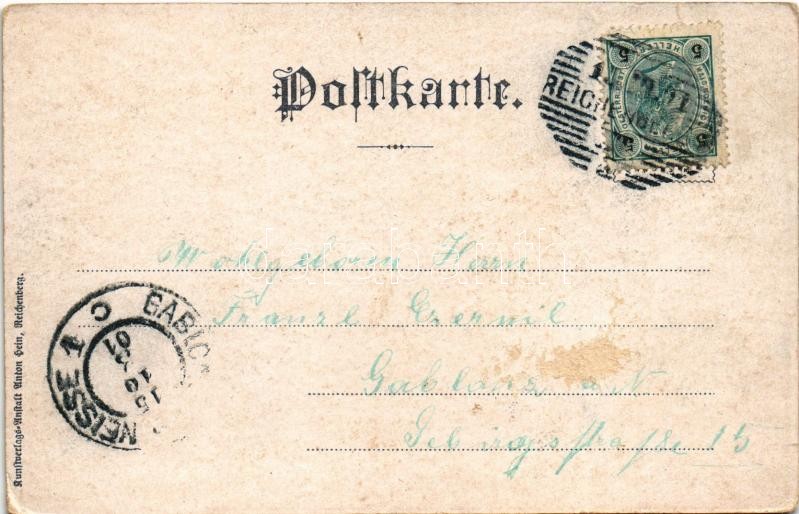 Postkarte.
5 HELLER 5
REICHENBERG
Wohlgeboren Herrn
Franz Czernil
Gablonz a. N
Gebirgsstraße 15
GABLO
NEISSE 1 C
Kunstverlags-Anstalt Anton Hein, Reichenberg.